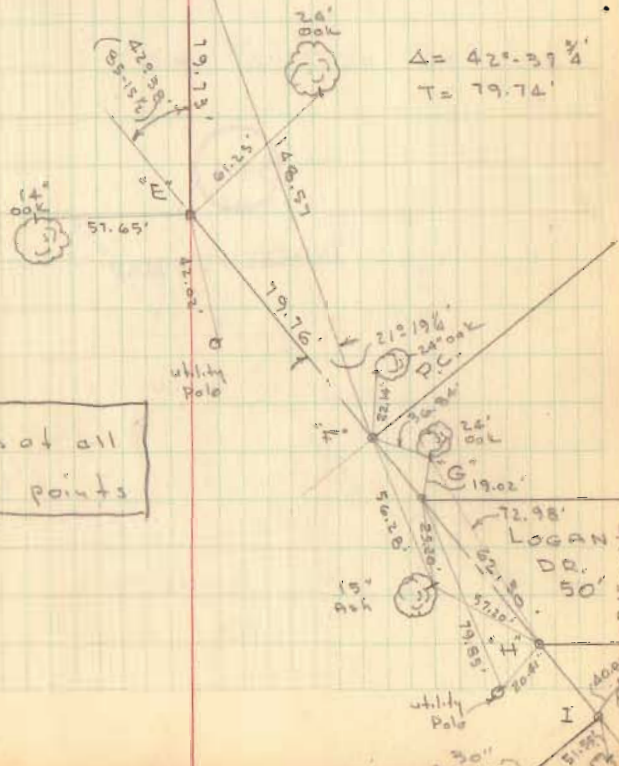 24"
oak
Δ= 42°-37 3/4'
T= 79.74'
42°38'
(85-15½)
79.73'
148.57
61.23'
"E"
14"
oak
57.65'
42.02'
79.76
utility
Pole
21°-19¼'
24" oak
P.C.
22.14'
36.84'
"F"
24"
oak
"G"
19.02'
of all
points
56.28'
25.20'
72.98'
LOGAN
DR.
50'
62.30'
15"
Ash
57.20'
79.85'
"H"
20.41'
utility
Pole
I
40.
51.55'
30"